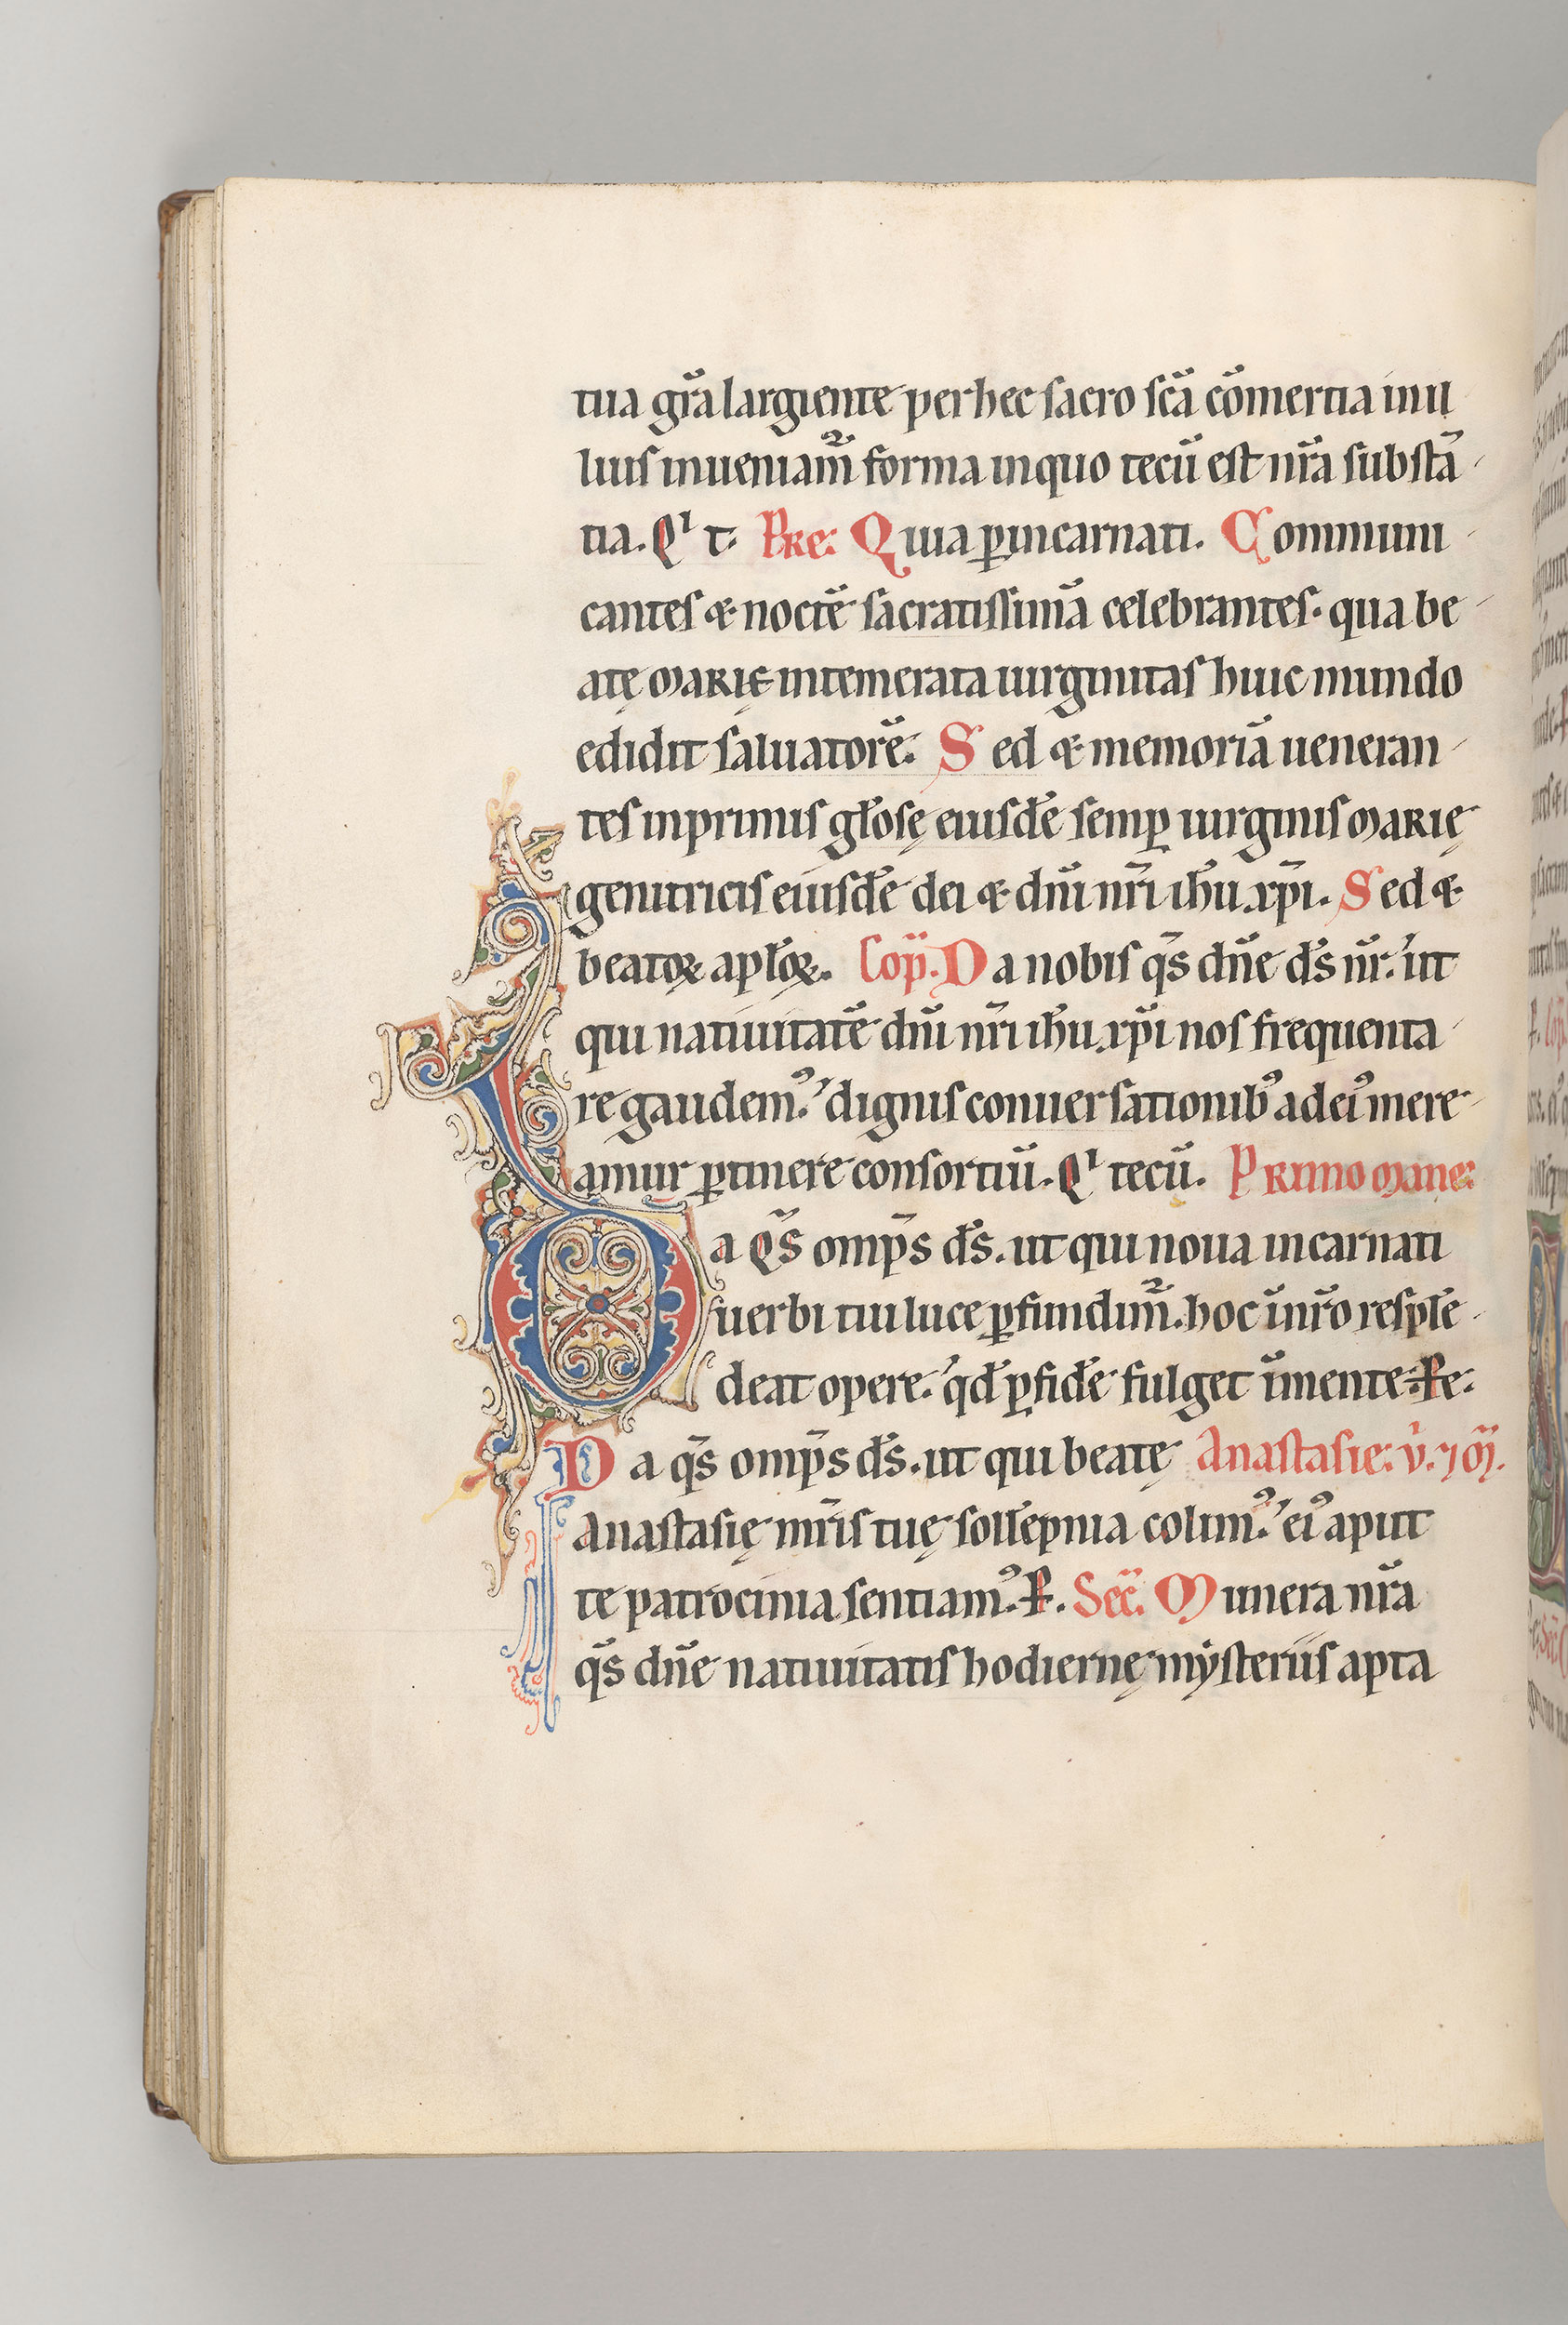 tua gr̄a largiente per hec sacro sc̄a cōmertia in il
lius inueniam᷑ forma in quo tecū est nr̄a substā
tia. Qı t. Pre: Quia ꝑ incarnati. Communi
cantes & noctē sacratissimā celebrantes. qua be
atę MARIĘ intemerata uirginitas huic mundo
edidit saluatorē. Sed & memoriā ueneran
tes inprimis gl̄osę eiusdē semꝑ uirginis MARIĘ
genitricis eiusdē dei & dn̄i nr̄i ih̄u xp̄i. Sed &
beatoꝝ apl̄oꝝ. Cōp. Da nobis q̄s dn̄e ds̄ nr̄. ut
qui natiuitatē dn̄i nr̄i ih̄u xp̄i nos frequenta
re gaudemꝰ. dignis conuersationibꝰ ad eiꝰ mere
amur ꝑtinere consortiū. Qı tecū. PRIMO MANE:
Da q̄s omp̄s ds̄. ut qui noua incarnati
uerbi tui luce ꝑfundim᷑. hoc ī nr̄o resplē
deat opere. qd̄ ꝑ fidē fulget ī mente. Pe:
Da q̄s omp̄s ds̄. ut qui beatę Anastasie: v̄. ⁊ M̄.
Anastasię mr̄is tuę soll̄epnia colimꝰ. eiꝰ aput
te patrocinia sentiamꝰ. P. Sec̄. Munera nr̄a
q̄s dn̄e natiuitatis hodiernę mẏsteriis apta